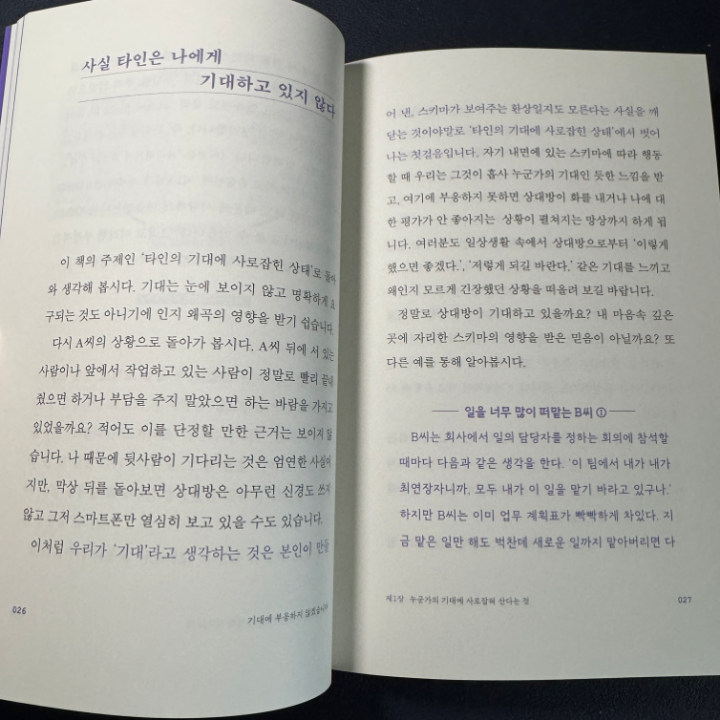 사실 타인은 나에게
기대하고 있지 않다
이 책의 주제인 '타인의 기대에 사로잡힌 상태'로 돌아
와 생각해 봅시다. 기대는 눈에 보이지 않고 명확하게 요
구되는 것도 아니기에 인지 왜곡의 영향을 받기 쉽습니다.
다시 A씨의 상황으로 돌아가 봅시다. A씨 뒤에 서 있는
사람이나 앞에서 작업하고 있는 사람이 정말로 빨리 끝내
줬으면 하거나 부담을 주지 말았으면 하는 바람을 가지고
있었을까요? 적어도 이를 단정할 만한 근거는 보이지 않
습니다. 나 때문에 뒷사람이 기다리는 것은 엄연한 사실이
지만, 막상 뒤를 돌아보면 상대방은 아무런 신경도 쓰지
않고 그저 스마트폰만 열심히 보고 있을 수도 있습니다.
이처럼 우리가 '기대'라고 생각하는 것은 본인이 만들
026
기대에 부응하지 않겠습니다
어 낸, 스키마가 보여주는 환상일지도 모른다는 사실을 깨
닫는 것이야말로 '타인의 기대에 사로잡힌 상태'에서 벗어
나는 첫걸음입니다. 자기 내면에 있는 스키마에 따라 행동
할 때 우리는 그것이 흡사 누군가의 기대인 듯한 느낌을 받
고, 여기에 부응하지 못하면 상대방이 화를 내거나 나에 대
한 평가가 안 좋아지는 상황이 펼쳐지는 망상까지 하게 됩
니다. 여러분도 일상생활 속에서 상대방으로부터 '이렇게
했으면 좋겠다.', '저렇게 되길 바란다.' 같은 기대를 느끼고
왜인지 모르게 긴장했던 상황을 떠올려 보길 바랍니다.
정말로 상대방이 기대하고 있을까요? 내 마음속 깊은
곳에 자리한 스키마의 영향을 받은 믿음이 아닐까요? 또
다른 예를 통해 알아봅시다.
일을 너무 많이 떠맡는 B씨 ①
B씨는 회사에서 일의 담당자를 정하는 회의에 참석할
때마다 다음과 같은 생각을 한다. '이 팀에서 내가 내가
최연장자니까. 모두 내가 이 일을 맡기 바라고 있구나.'
하지만 B씨는 이미 업무 계획표가 빡빡하게 차있다. 지
금 맡은 일만 해도 벅찬데 새로운 일까지 맡아버리면 다
제1장 누군가의 기대에 사로잡혀 산다는 것
027